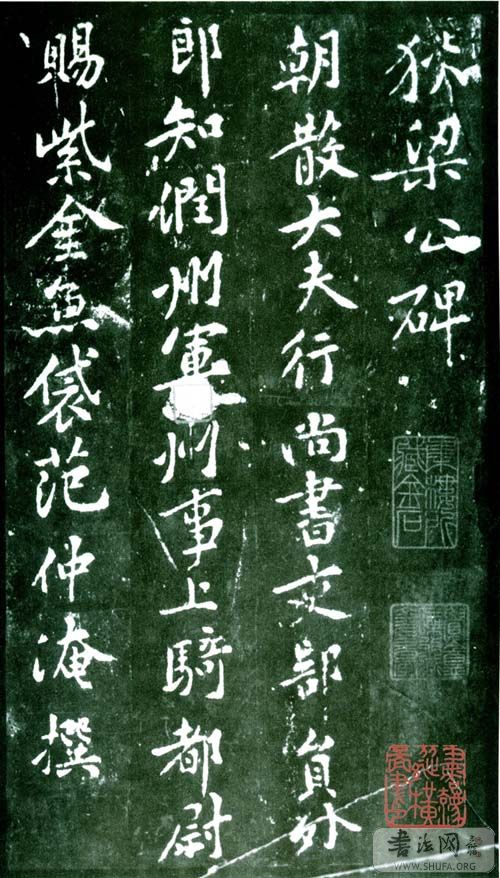 狄梁公碑
朝散大夫行尚書吏部員外
郎知潤州軍州事上騎都尉
賜紫金魚袋范仲淹撰
書法网
WWW.SHUFA.ORG